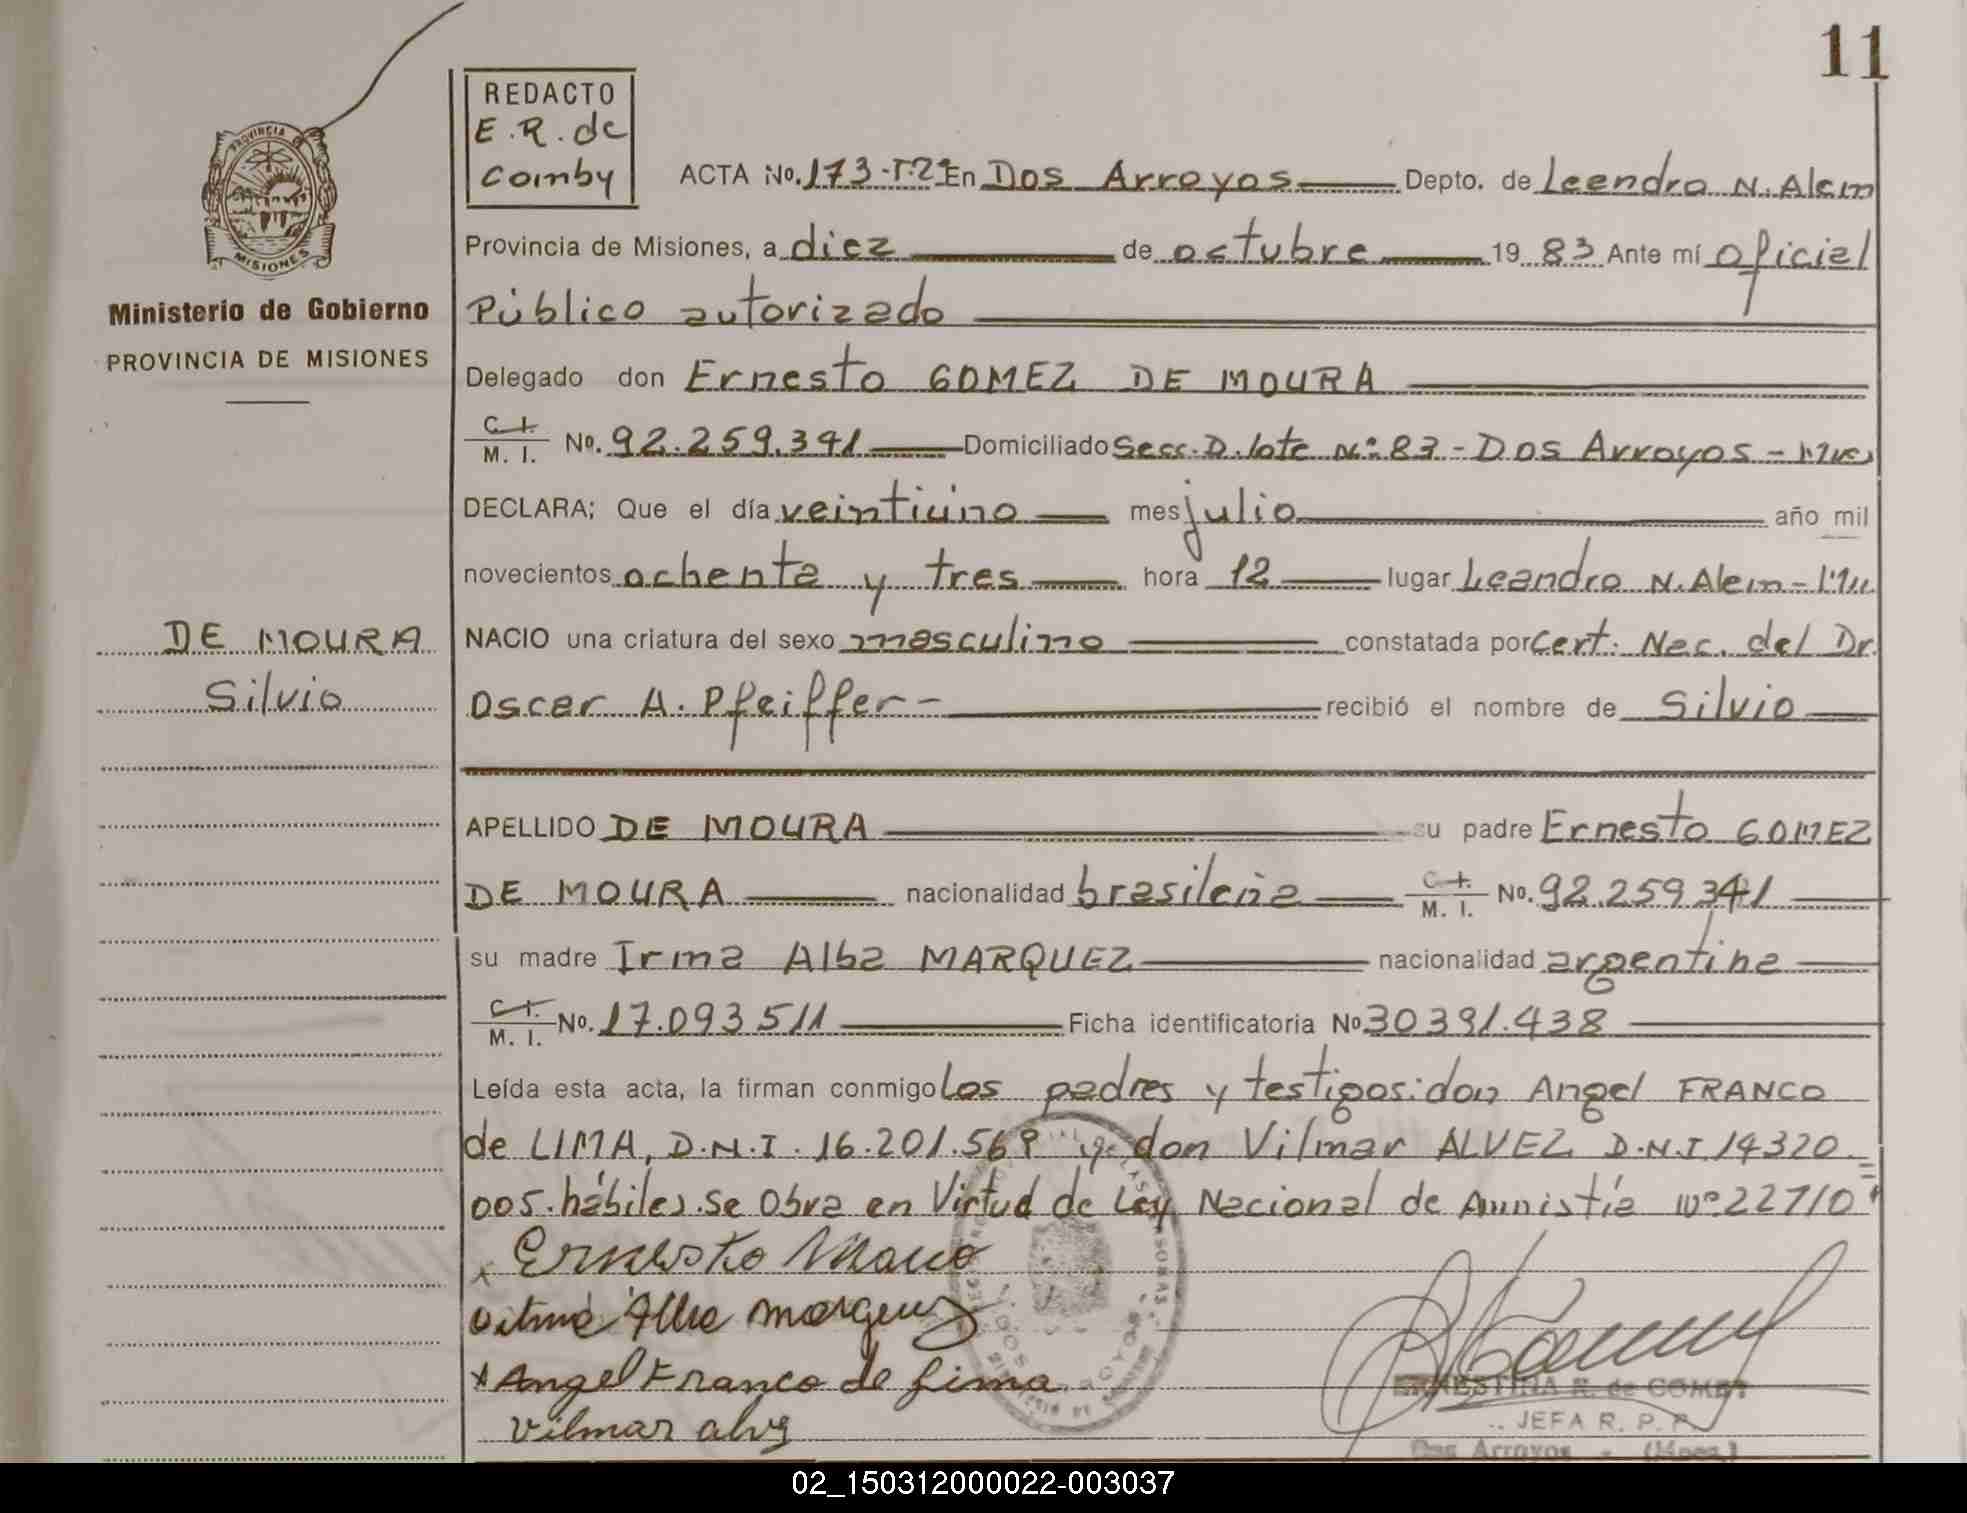 11
REDACTO
E.R. de
Comby
ACTA No. 173-T.2º En Dos Arroyos Depto. de Leandro N. Alem
Provincia de Misiones, a diez de octubre 19 83 Ante mí Oficial
Público autorizado
Ministerio de Gobierno
PROVINCIA DE MISIONES
Delegado don Ernesto GOMEZ DE MOURA
C. I. M. I. No. 92.259.341 Domiciliado Secc. D. lote Nº 83 - Dos Arroyos -
DECLARA; Que el día veintiuno mes julio año mil
novecientos ochenta y tres hora 12 lugar Leandro N. Alem -
DE MOURA
Silvio
NACIO una criatura del sexo masculino constatada por Cert. Nac. del Dr.
Oscar A. Pfeiffer - recibió el nombre de Silvio
APELLIDO DE MOURA su padre Ernesto GOMEZ
DE MOURA nacionalidad brasileña C. I. M. I. No. 92.259.341
su madre Irma Alba MARQUEZ nacionalidad argentina
C. I. M. I. No. 17.093511 Ficha identificatoria No 30391.438
Leída esta acta, la firman conmigo los padres y testigos: don Angel FRANCO
de LIMA, D.N.I. 16.201.569 y don Vilmar ALVEZ D.N.I 14320=
005. hábiles. Se Obra en Virtud de Ley Nacional de Amnistía Nº 22710"
Ernesto
Marquez
Angel Franco de Lima
Vilmar alvz
ERNESTINA R. de COMBY
JEFA R. P. P.
Dos Arroyos - (Mnes.)
PROVINCIA DE
MISIONES
02_150312000022-003037